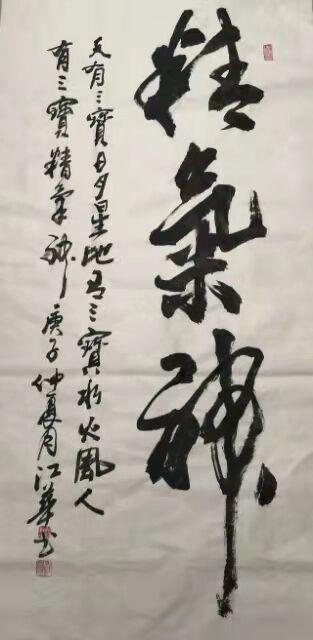 精氣神
天有三寶日月星地有三寶水火風人
有三寶精氣神庚子仲夏月江華书